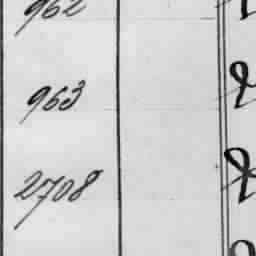 962
963
2708